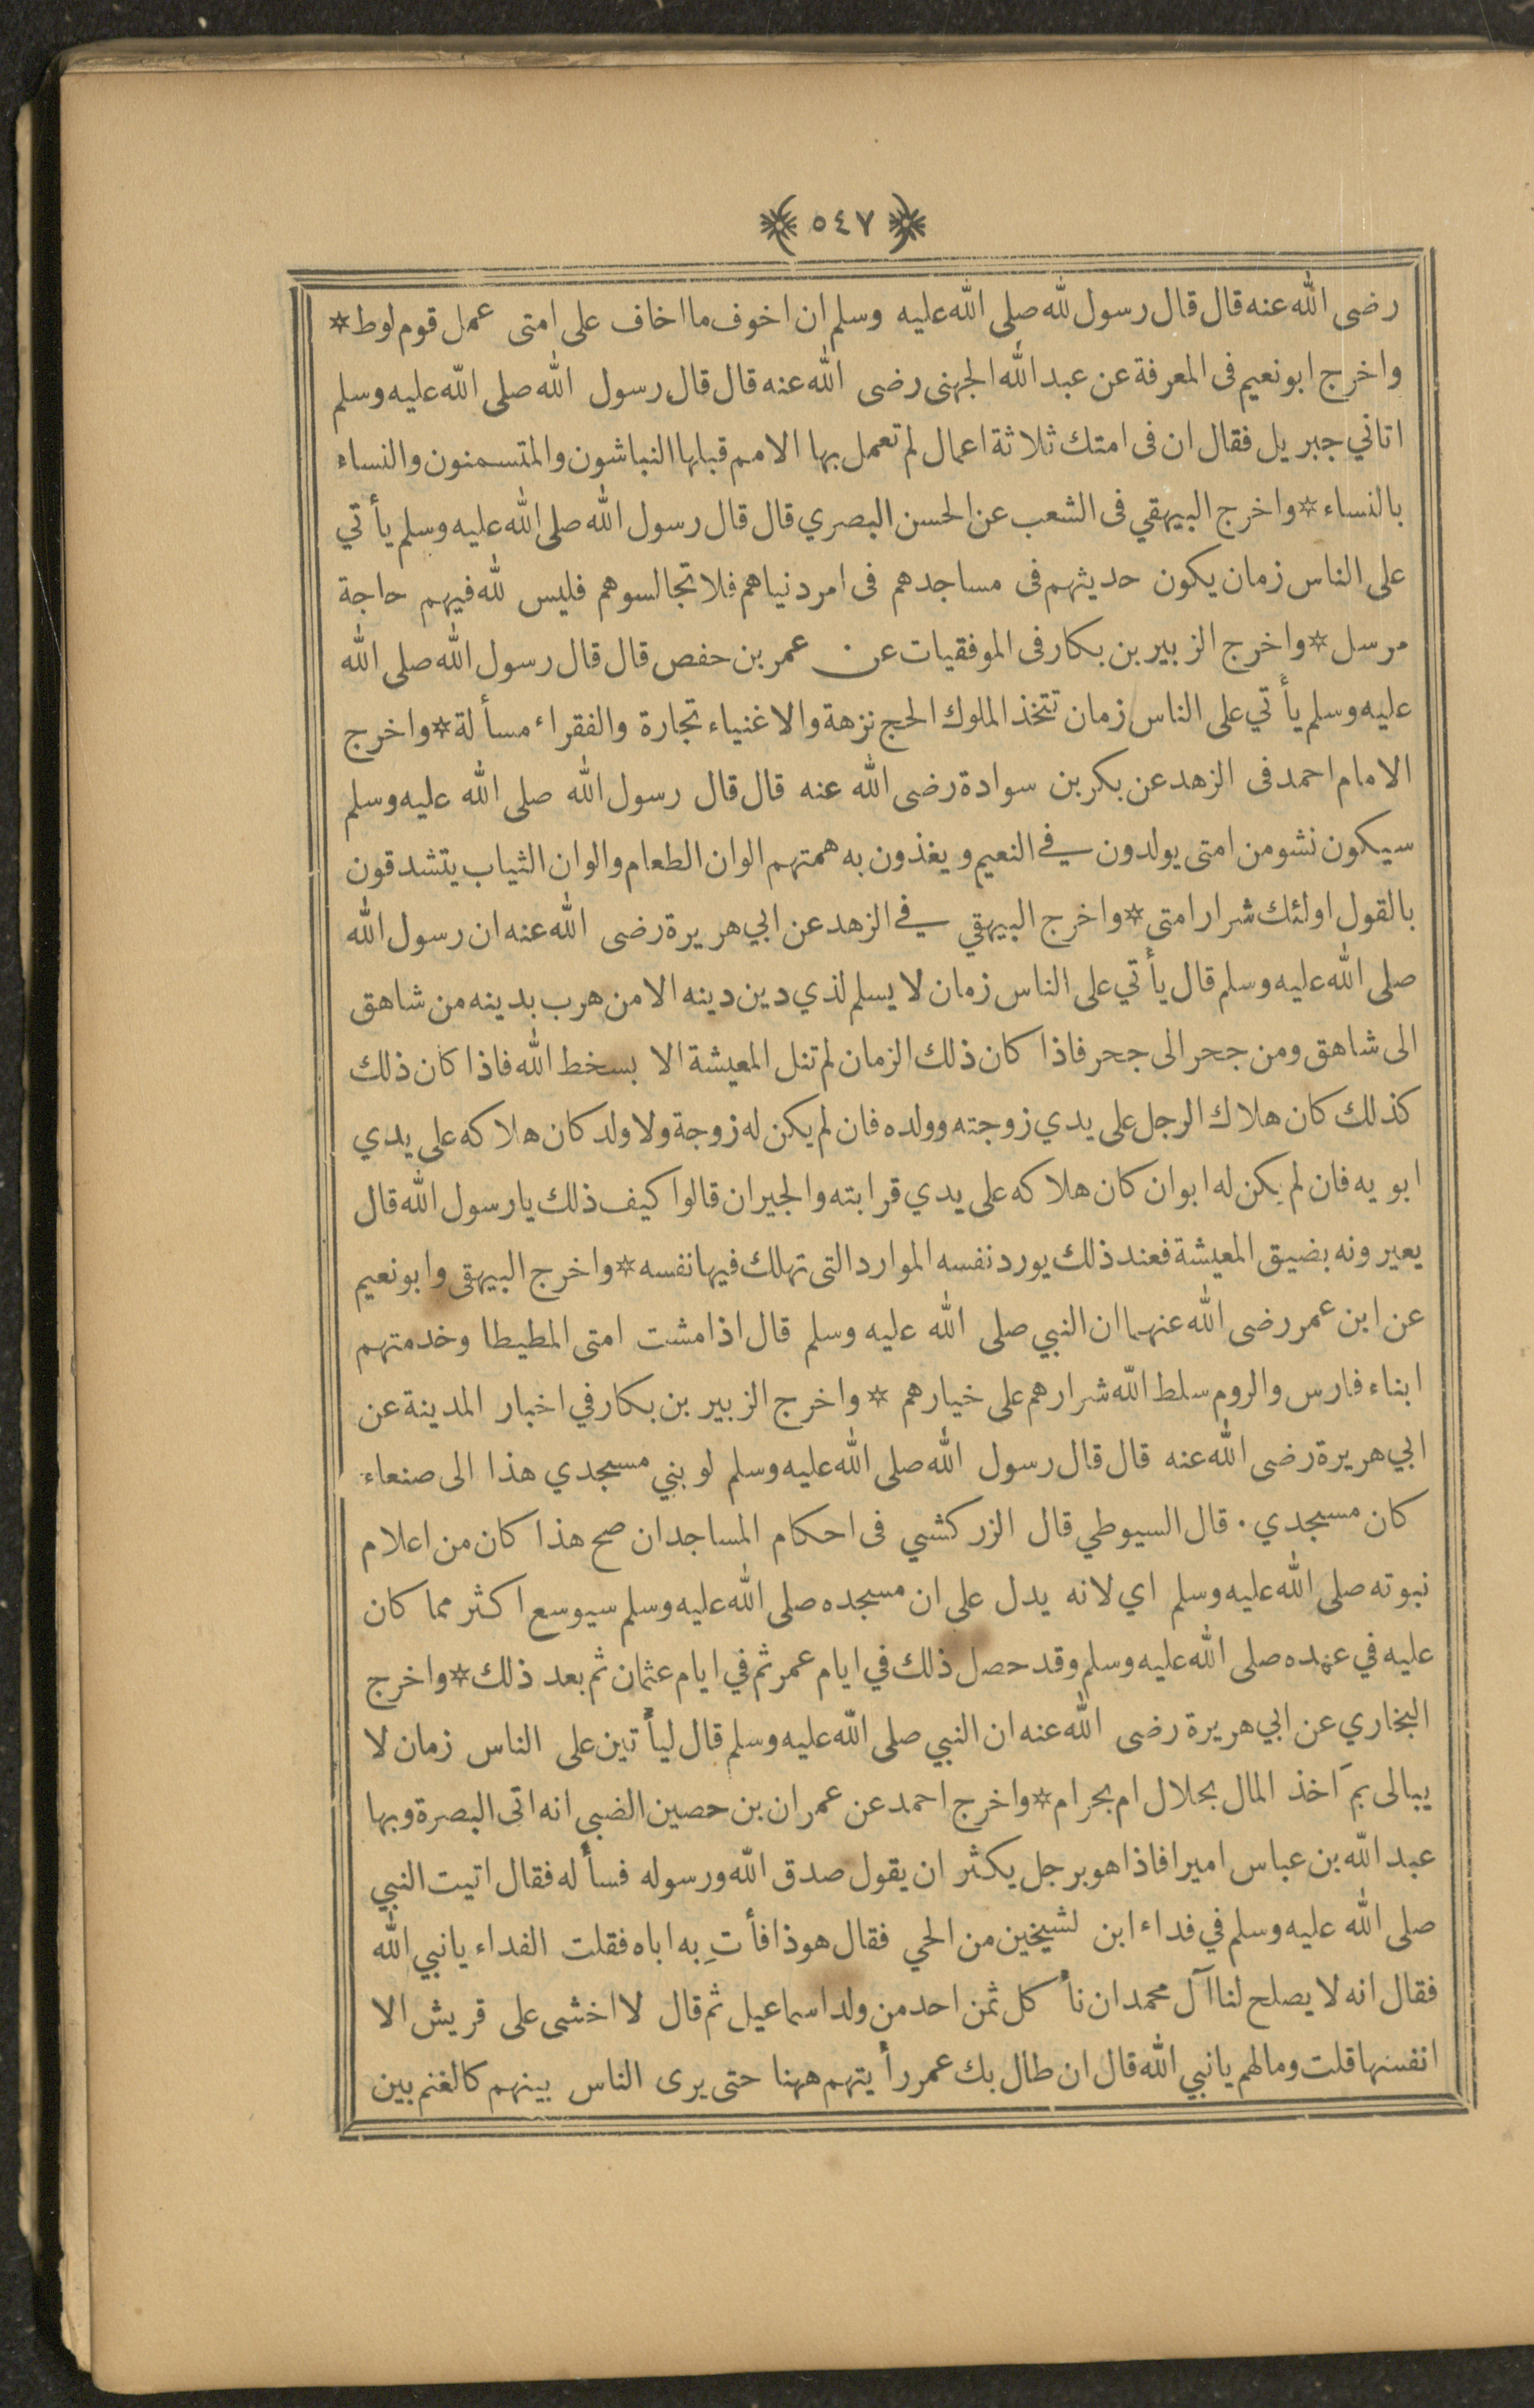 ٥٤٧
رضى الله عنه قال قال رسول لله صلى الله عليه وسلم ان اخوف ما اخاف على امتى عمل قوم لوط *
واخرج ابو نعيم فى المعرفة عن عبد الله الجهنى رضى الله عنه قال قال رسول الله صلى الله عليه وسلم
اتاني جبريل فقال ان فى امتك ثلاثة اعمال لم تعمل بها الامم قبلها النباشون والمتسمنون والنساء
بالنساء * واخرج البيهقي فى الشعب عن الحسن البصري قال قال رسول الله صلى الله عليه وسلم يأتي
على الناس زمان يكون حديثهم فى مساجدهم فى امر دنياهم فلا تجالسوهم فليس لله فيهم حاجة
مرسل * واخرج الزبير بن بكار فى الموفقيات عن عمر بن حفص قال قال رسول الله صلى الله
عليه وسلم يأتي على الناس زمان تتخذ الملوك الحج نزهة والاغنياء تجارة والفقراء مسألة * واخرج
الامام احمد فى الزهد عن بكر بن سوادة رضى الله عنه قال قال رسول الله صلى الله عليه وسلم
سيكون نشو من امتى يولدون في النعيم ويغذون به همتهم الوان الطعام والوان الثياب يتشدقون
بالقول اولئك شرار امتى * واخرج البيهقي في الزهد عن ابي هريرة رضى الله عنه ان رسول الله
صلى الله عليه وسلم قال يأتي على الناس زمان لا يسلم لذي دين دينه الا من هرب بدينه من شاهق
الى شاهق ومن جحر الى جحر فاذا كان ذلك الزمان لم تنل المعيشة الا بسخط الله فاذا كان ذلك
كذلك كان هلاك الرجل على يدي زوجته وولده فان لم يكن له زوجة ولا ولد كان هلاكه على يدي
ابويه فان لم يكن له ابوان كان هلاكه على يدي قرابته والجيران قالوا كيف ذلك يا رسول الله قال
يعيرونه بضيق المعيشة فعند ذلك يورد نفسه الموارد التى تهلك فيها نفسه * واخرج البيهقى وابو نعيم
عن ابن عمر رضى الله عنهما ان النبي صلى الله عليه وسلم قال اذا مشت امتى المطيطا وخدمتهم
ابناء فارس والروم سلط الله شرارهم على خيارهم * واخرج الزبير بن بكار في اخبار المدينة عن
ابي هريرة رضى الله عنه قال قال رسول الله صلى الله عليه وسلم لو بني مسجدي هذا الى صنعاء
كان مسجدي ٠ قال السيوطي قال الزركشي فى احكام المساجد ان صح هذا كان من اعلام
نبوته صلى الله عليه وسلم اي لانه يدل على ان مسجده صلى الله عليه وسلم سيوسع اكثر مما كان
عليه في عهده صلى الله عليه وسلم وقد حصل ذلك في ايام عمر ثم في ايام عثمان ثم بعد ذلك * واخرج
البخاري عن ابي هريرة رضى الله عنه ان النبي صلى الله عليه وسلم قال ليأتين على الناس زمان لا
يبالى بمَ اخذ المال بحلال ام بحرام * واخرج احمد عن عمران بن حصين الضبي انه اتى البصرة وبها
عبد الله بن عباس اميرا فاذا هو برجل يكثر ان يقول صدق الله ورسوله فسأله فقال اتيت النبي
صلى الله عليه وسلم في فداء ابن لشيخين من الحي فقال هوذا فأتِ به اباه فقلت الفداء يا نبي الله
فقال انه لا يصلح لنا آل محمد ان نأكل ثمن احد من ولد اسماعيل ثم قال لا اخشى على قريش الا
انفسها قلت ومالهم يا نبي الله قال ان طال بك عمر رأيتهم ههنا حتى يرى الناس بينهم كالغنم بين